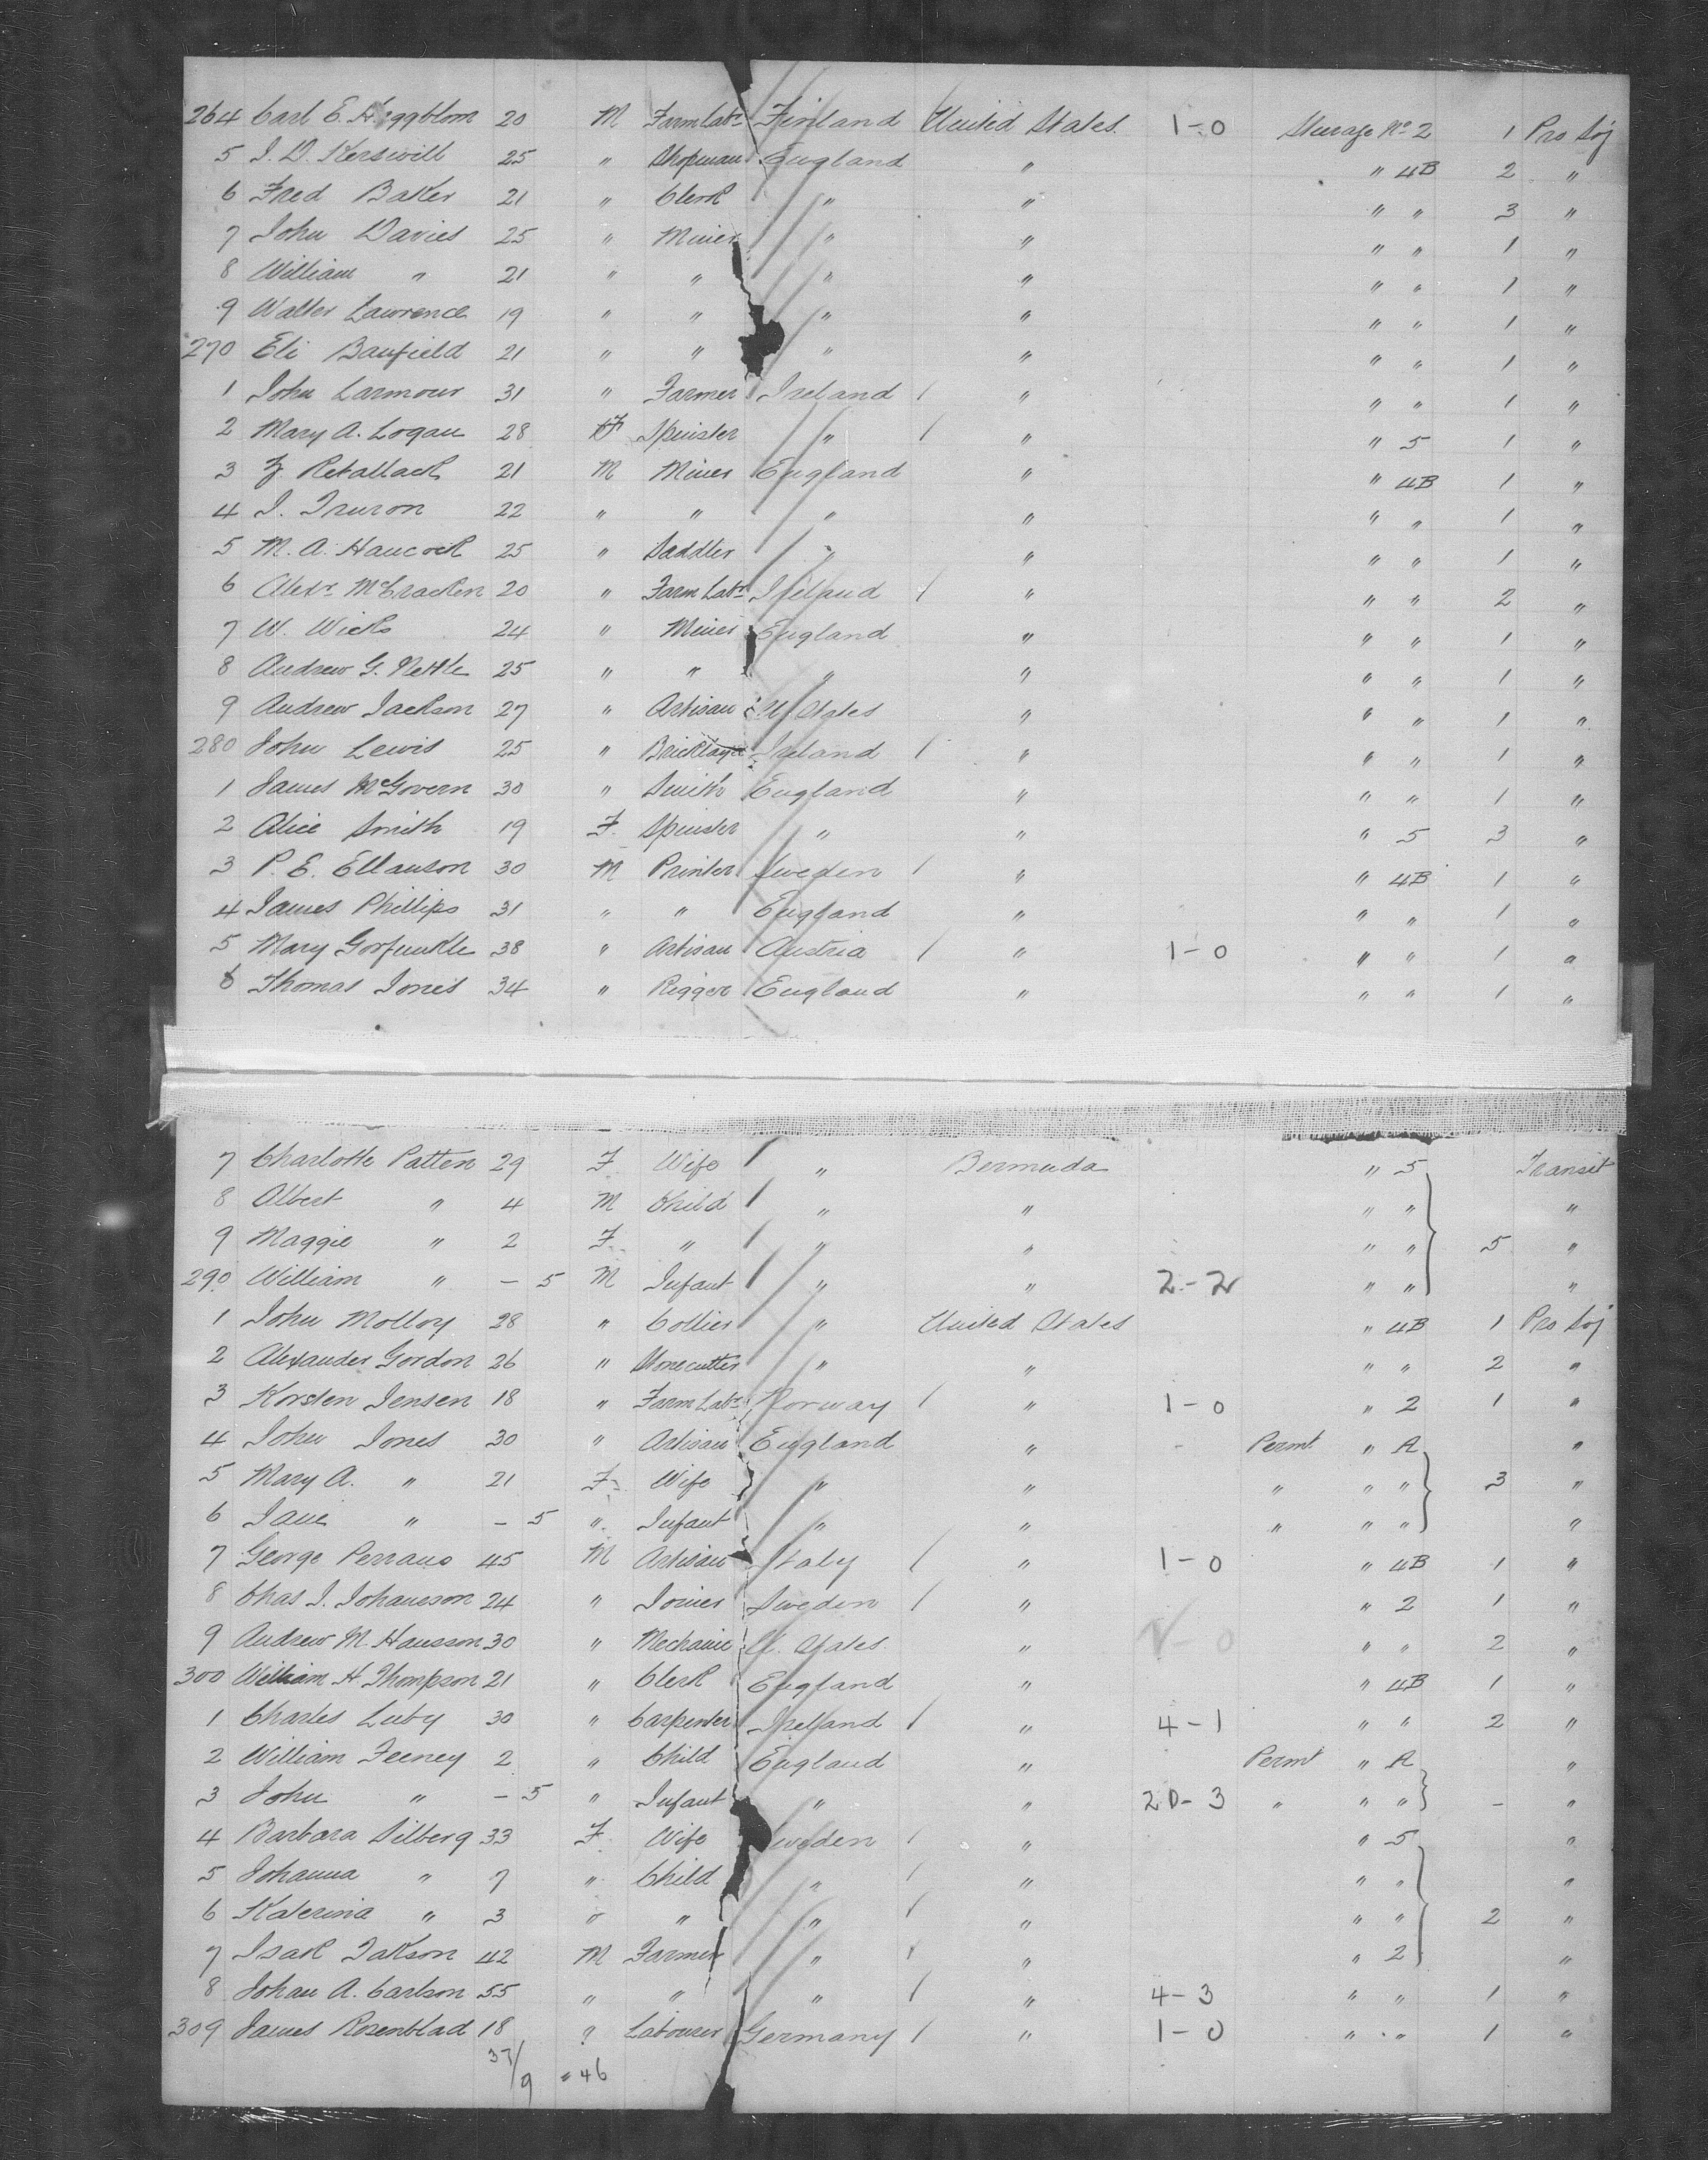 264 Carl E. Häggblom 20 M Farm Labr Finland United States 1-0 Steerage No 2 1 Pro Soj
5 J. D. Kerswill 25 " Shopman England " " 4B 2 "
6 Fred Baker 21 " Clerk " " " " 3 "
7 John Davies 25 " Miner " " " " 1 "
8 William " 21 " " " " " " 1 "
9 Walter Lawrence 19 " " " " " " 1 "
270 Eli Banfield 21 " " " " " " 1 "
1 John Larmour 31 " Farmer Ireland / " " " 1 "
2 Mary A. Logan 28 F Spinster " / " " 5 1 "
3 Retallack 21 M Miner England " " 4B 1 "
4 J. Truron 22 " " " " " " 1 "
5 M. A. Hancock 25 " Saddler " " " " 1 "
6 Alexr McCracken 20 " Farm Labr Ireland / " " " 2 "
7 W. Wicks 24 " Miner England " " " 1 "
8 Andrew G. Nettle 25 " " " " " " 1 "
9 Andrew Jackson 27 " Artisan U. States " " " 1 "
280 John Lewis 25 " Bricklayer Ireland / " " " 1 "
1 James McGovern 30 " Smith England " " " 1 "
2 Alice Smith 19 F. Spinster " " " 5 3 "
3 P. E. Ellanson 30 M Printer Sweden / " " 4B 1 "
4 James Phillips 31 " " England " " " 1 "
5 Mary Gorfunkle 38 " Artisan Austria / " 1-0 " " 1 "
6 Thomas Jones 34 " Rigger England " " " 1 "
7 Charlotte Patten 29 F. Wife " Bermuda " 5 Transit
8 Albert " 4 M Child " " " " "
9 Maggie " 2 F. " " " " " 5 "
290 William " - 5 M Infant " " 2-2 " " "
1 John Molloy 28 " Collier " United States " 4B 1 Pro Soj
2 Alexander Gordon 26 " Stonecutter " " " " 2 "
3 Korsten Jensen 18 " Farm Labr Norway / " 1-0 " 2 1 "
4 John Jones 30 " Artisan England " - Permt " A "
5 Mary A. " 21 F. Wife " " " " " 3 "
6 Jane " - 5 " Infant " " " " " "
7 George Perrano 45 M Artisan Italy / " 1-0 " 4B 1 "
8 Chas J. Johansson 24 " Joiner Sweden / " " 2 1 "
9 Andrew M. Hansson 30 " Mechanic U. States " " " 2 "
300 William H Thompson 21 " Clerk England " " 4B 1 "
1 Charles Luby 30 " Carpenter Ireland / " 4-1 " " 2 "
2 William Feeney 2 " Child England " Permt " A "
3 John " - 5 " Infant " " 20-3 " " " - "
4 Barbara Silberg 33 F. Wife Sweden / " " 5 "
5 Johanna " 7 " Child " / " " " "
6 Katerina " 3 " " " / " " " 2 "
7 Isak Jakson 42 M Farmer " / " " 2 "
8 Johan A. Carlson 55 " " " / " 4-3 " " 1 "
309 James Rosenblad 18 " Labourer Germany / " 1-0 " " 1 "
37/9 = 46